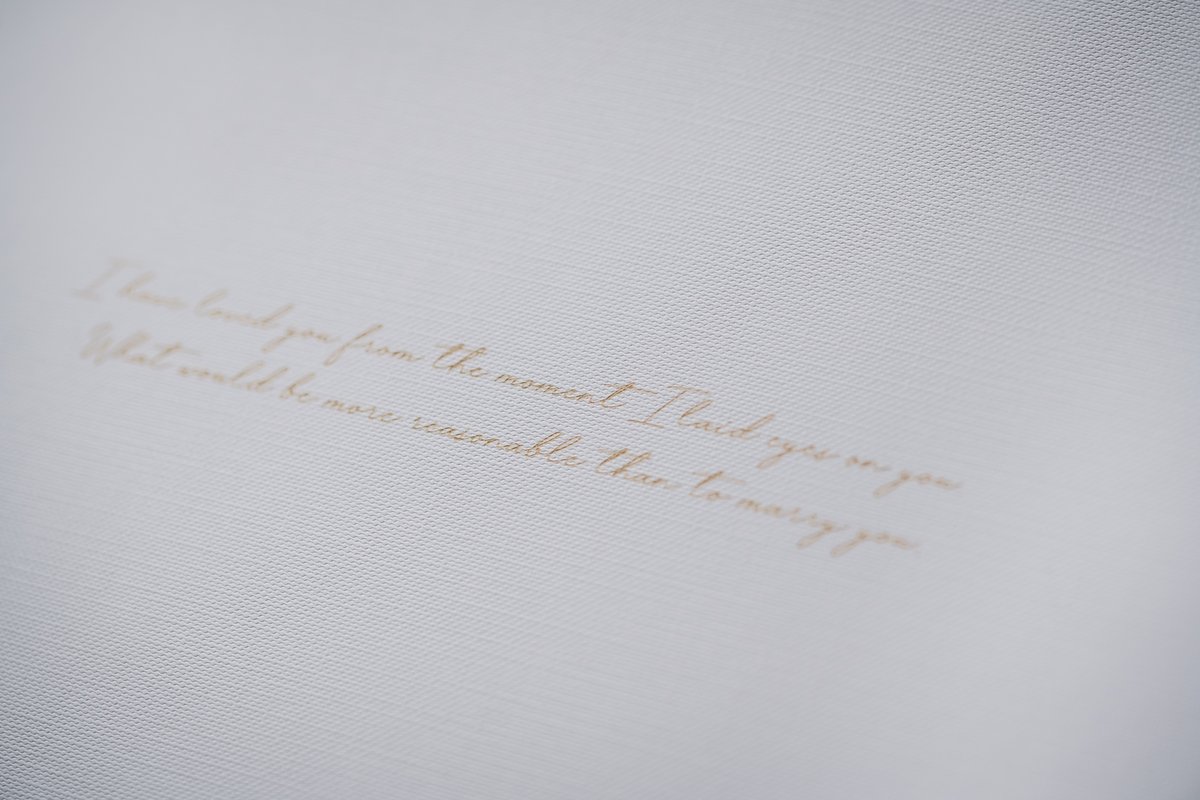 I have loved you from the moment I laid eyes on you
What would be more reasonable than to marry you